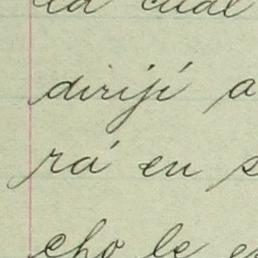 la cual
dirijí a
rá en s
cho le e